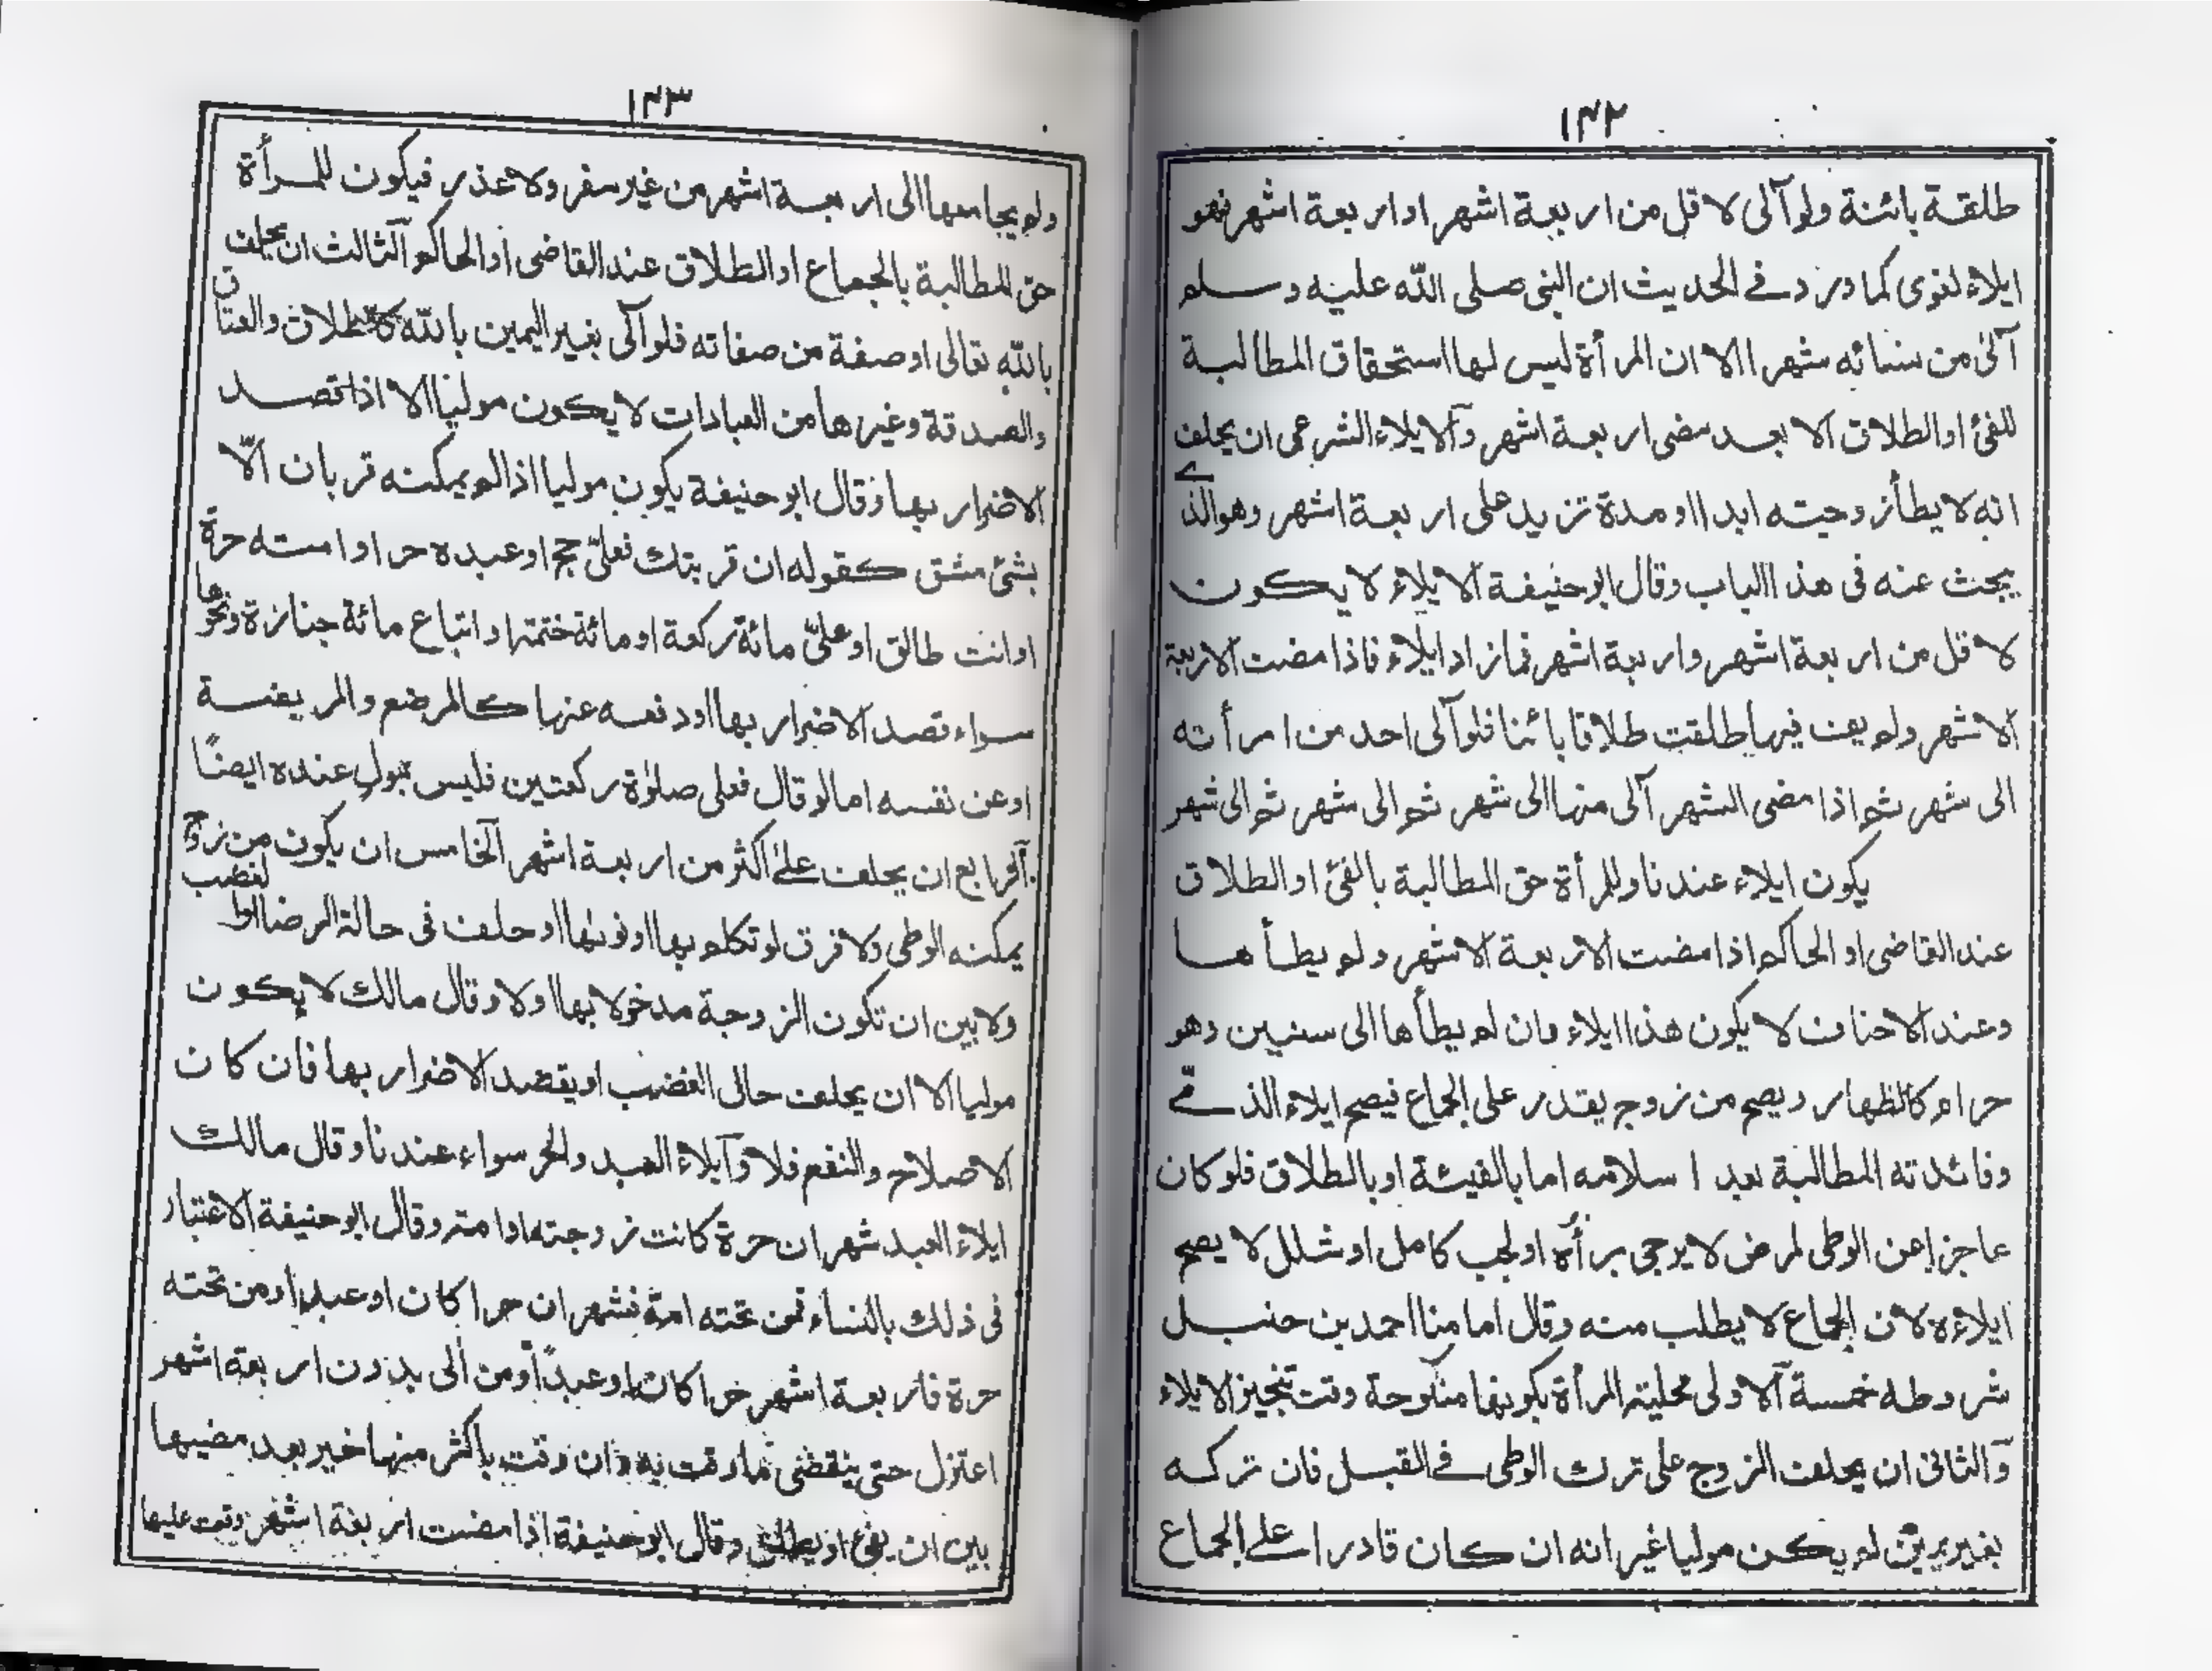 ١٤٢
طلقة بائنة ولو آلى لاقل من اربعة اشهر او اربعة اشهر فهو
ايلاء لغوى كما ورد فے الحديث ان النبى صلى الله عليه وسلم
آلى من نسائه شهرا الا ان المرأة ليس لها استحقاق المطالبة
للفئ او الطلاق الا بعد مضى اربعة اشهر والايلاء الشرعى ان يحلف
انه لا يطأ زوجته ابدا او مدة تزيد على اربعة اشهر وهو الذے
يبحث عنه فى هذا الباب وقال ابوحنيفة الايلاء لا يكون
لاقل من اربعة اشهر واربعة اشهر فمازاد ايلاء فاذا مضت الاربعة
الاشهر ولم يف فيها طلقت طلاقا بائنا فلو آلى احد من امرأته
الى شهر ثم اذا مضى الشهر آلى منها الى شهر ثم الى شهر ثم الى شهر
يكون ايلاء عندنا وللمرأة حق المطالبة بالفئ او الطلاق
عند القاضى او الحاكم اذا مضت الاربعة الاشهر ولم يطأها
وعند الاحناف لا يكون هذا ايلاء وان لم يطأها الى سنين وهو
حرام كالظهار ويصح من زوج يقدر على الجماع فيصح ايلاء الذمّے
وفائدته المطالبة بعد اسلامه اما بالفيئة او بالطلاق فلو كان
عاجزا عن الوطى لمرض لا يرجى برأه او لجب كامل او شلل لا يصح
ايلاءه لان الجماع لا يطلب منه وقال امامنا احمد بن حنبل
شروطه خمسة الاولى محلية المرأة بكونها منكوحة وقت تنجيز الايلاء
والثانى ان يحلف الزوج على ترك الوطى فے القبل فان تركه
بغير يمين لم يكن موليا غير انه ان كان قادرا علے الجماع
١٤٣
ولم يجامعها الى اربعة اشهر من غير سفر ولا عذر فيكون للمرأة
حق المطالبة بالجماع او الطلاق عند القاضى او الحاكم الثالث ان يحلف
بالله تعالى او صفة من صفاته فلو آلى بغير اليمين بالله كالطلاق والعتاق
والصدقة وغيرها من العبادات لا يكون موليا الا اذا قصد
الاضرار بها وقال ابوحنيفة يكون موليا اذا لم يمكنه قربان الّا
بشئ مشق كقوله ان قربتك فعلىّ حج او عبده حر او امته حرة
او انت طالق او علىّ مائة ركعة او مائة ختمة او اتباع مائة جنازة ونحوها
سواء قصد الاضرار بها او دفعه عنها كالمرضع والمريضة
او عن نفسه اما لو قال فعلى صلوٰة ركعتين فليس بمول عنده ايضًا
الرابع ان يحلف علےٰ اكثر من اربعة اشهر الخامس ان يكون من زوج
يمكنه الوطى ولا فرق لو تكلم بها او نوٮها او حلف فى حالة الرضا او الغضب
ولا بين ان تكون الزوجة مدخولا بها اولا وقال مالك لا يكون
موليا الا ان يحلف حالى الغضب او يقصد الاضرار بها فان كان
الاصلاح والنفع فلا وآيلاء العبد والحر سواء عندنا وقال مالك
ايلاء العبد شهران حرة كانت زوجته او امته وقال ابوحنيفة الاعتبار
فى ذلك بالنساء فمن تحته امة فشهران حرا كان او عبدا ومن تحته
حرة فاربعة اشهر حرا كان او عبدًا ومن آلى بدون اربعة اشهر
اعتزل حتى ينقضى ما وقت به وان وقت باكثر منها خير بعد مضيها
بين ان يفئ او يطلق وقال ابوحنيفة اذا مضت اربعة اشهر وقعت عليها